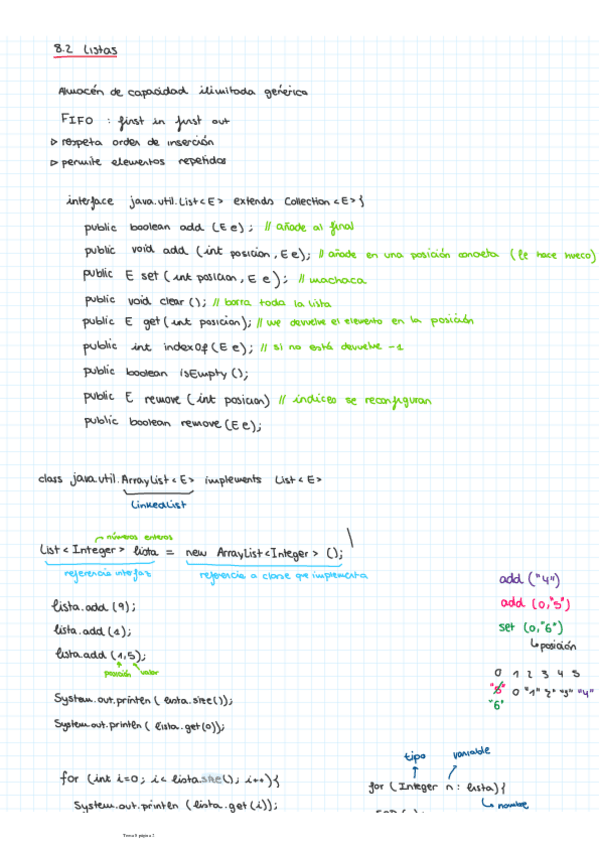 8.2 Listas
Almacén de capacidad ilimitada genérica
FIFO : first in first out
▷ respeta orden de inserción
▷ permite elementos repetidos
interface java.util.List<E> extends Collection<E>{
public boolean add (E e); // añade al final
public void add (int posicion, E e); // añade en una posición concreta (le hace hueco)
public E set (int posicion, E e); // machaca
public void clear (); // borra toda la lista
public E get (int posicion); // me devuelve el elemento en la posición
public int indexOf (E e); // si no está devuelve -1
public boolean isEmpty ();
public E remove (int posicion) // indices se reconfiguran
public boolean remove (E e);
class java.util.ArrayList<E> implements List<E>
LinkedList
números enteros
List<Integer> lista = new ArrayList<Integer> ();
referencia interfaz referencia a clase que implementa
lista.add (9);
lista.add (1);
lista.add (1,5);
posición valor
System.out.println ( lista.size());
System.out.println ( lista.get(0));
for (int i=0; i< lista.size(); i++){
System.out.println (lista.get(i));
add ("4")
add (0,"5")
set (0,"6")
↳ posición
0 1 2 3 4 5
"5" 0 "1" "2" "3" "4"
"6"
tipo variable
for (Integer n : lista){
↳ nombre
Tema 8 página 2